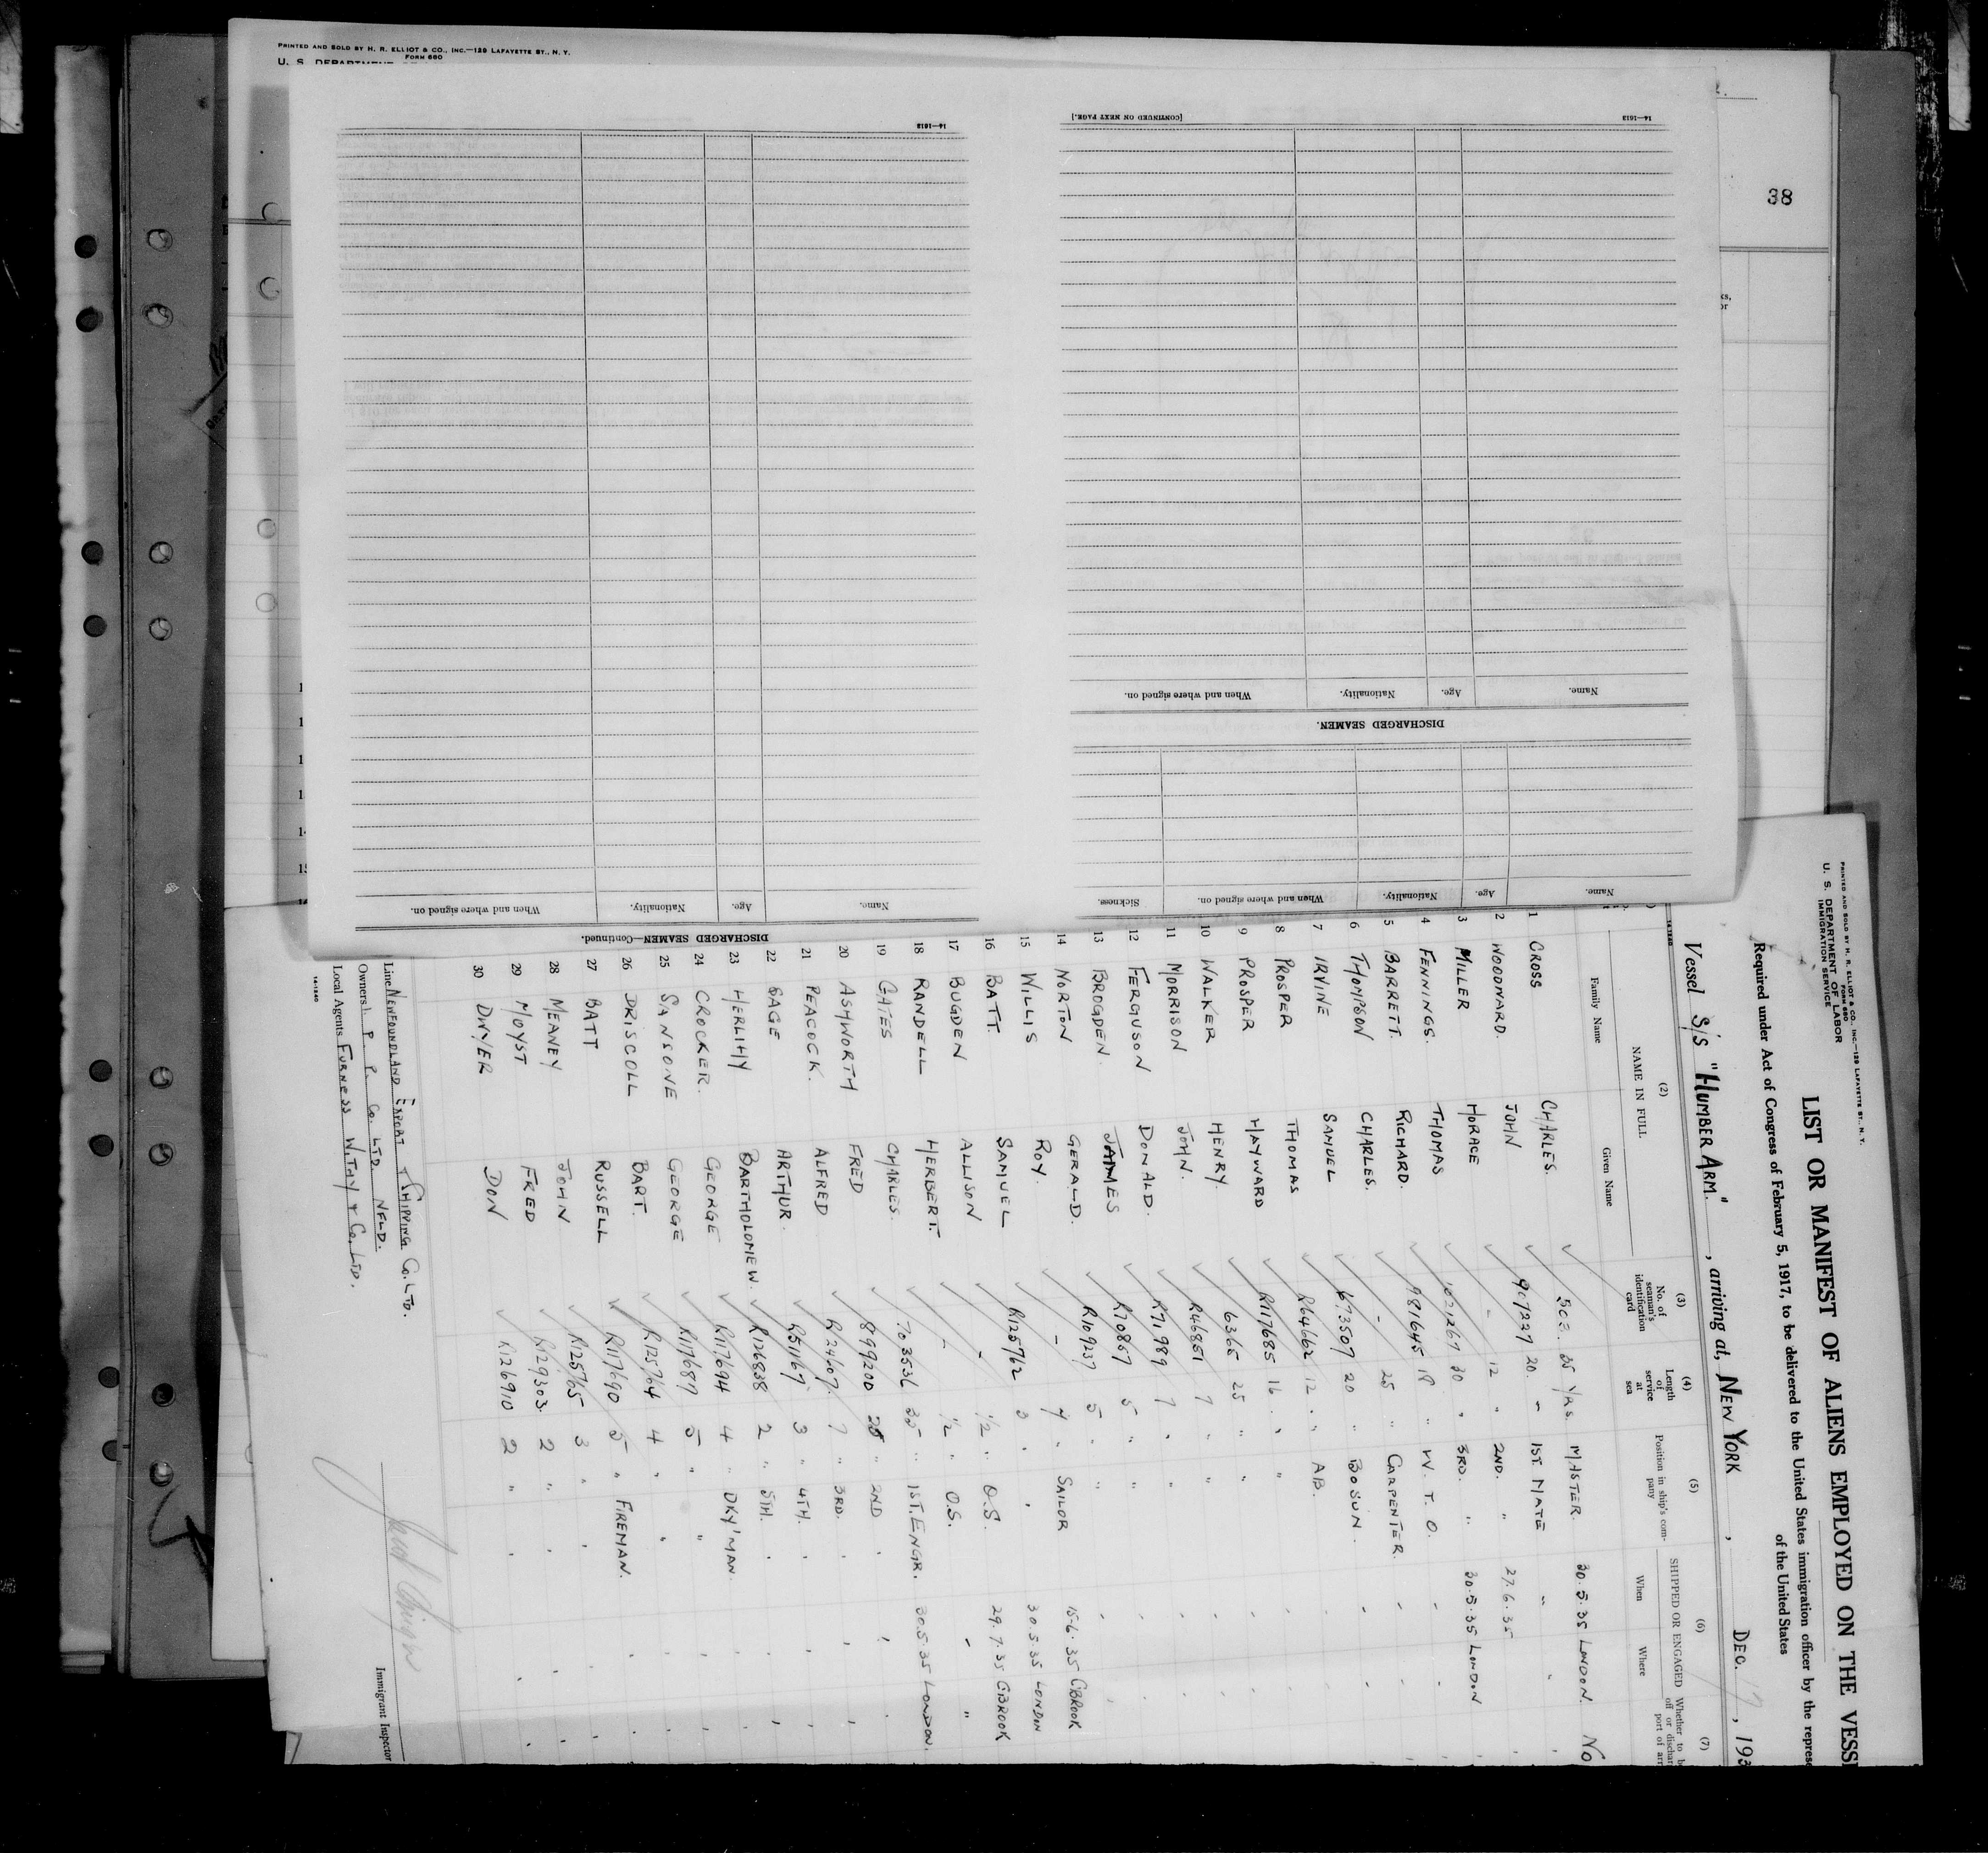 PRINTED AND SOLD BY H. R. ELLIOT & CO., INC.—129 LAFAYETTE ST., N. Y.
FORM 680
38
14—1613
[CONTINUED ON NEXT PAGE.]
14—1613
When and where signed on.
Nationality.
Age.
Name.
DISCHARGED SEAMEN.
Sickness.
When and where signed on.
Nationality.
Age.
Name.
When and where signed on.
Nationality.
Age.
Name.
DISCHARGED SEAMEN—Continued.
PRINTED AND SOLD BY H. R. ELLIOT & CO., INC.—129 LAFAYETTE ST., N. Y.
FORM 680
U. S. DEPARTMENT OF LABOR
IMMIGRATION SERVICE
LIST OR MANIFEST OF ALIENS EMPLOYED ON THE
Required under Act of Congress of February 5, 1917, to be delivered to the United States immigration officer by the
of the United States
Vessel S/S "HUMBER ARM." , arriving at, NEW YORK , DEC. 17, 193
(2) (3) (4) (5) (6) (7)
NAME IN FULL
Family Name Given Name
No. of seaman's identification card
Length of service at sea
Position in ship's company
SHIPPED OR ENGAGED
When Where
1 CROSS CHARLES. 35 YRS. MASTER. 30.5.35 LONDON. No
2 WOODWARD. JOHN 907227 20 " 1ST MATE "
3 MILLER HORACE - 12 " 2ND. " 27.6.35
4 FENNINGS. THOMAS 1021267 30 " 3RD. " 30.5.35 LONDON
5 BARRETT. RICHARD. 981645 18 " W. T. O.
6 THOMPSON CHARLES. - 25 " CARPENTER.
7 IRVINE SAMUEL 673507 20 " BOSUN.
8 PROSPER THOMAS R64662 12 " AB.
9 PROSPER HAYWARD R117685 16 " "
10 WALKER HENRY. 6365 25 " "
11 MORRISON JOHN. R46851 7 " "
12 FERGUSON DONALD. R71989 7 " "
13 BROGDEN. JAMES R70867 5 " "
14 NORTON GERALD. R109237 5 " "
15 WILLIS ROY. - 4 " SAILOR 15-6-35 C'BROOK
16 BATT. SAMUEL R125762 3 " " 30.5.35 LONDON
17 BUGDEN ALLISON - 1/2 " O.S. 29.7.35 C'BROOK
18 RANDELL HERBERT. - 1/2 " O.S. " "
19 GATES CHARLES. 703536 35 " 1ST. ENGR. 30.5.35 LONDON.
20 ASHWORTH FRED 899200 25 " 2ND "
21 PEACOCK. ALFRED R24607 7 " 3RD. "
22 GAGE ARTHUR. R51167 3 " 4TH. "
23 HERLIHY BARTHOLOMEW. R126838 2 " 5TH. "
24 CROCKER. GEORGE R117694 4 " DKY'MAN.
25 SANSONE GEORGE R117687 5 " "
26 DRISCOLL BART. R125764 4 " "
27 BATT RUSSELL R117690 5 " FIREMAN.
28 MEANEY JOHN R125765 3 " "
29 MOYST FRED R129303. 2 " "
30 DWYER DON R126910 2 " "
Line NEWFOUNDLAND EXPORT & SHIPPING CO. LTD.
Owners I. P. P. Co. LTD. NFLD.
Local Agents FURNESS WITHY & Co. LTD.
Immigrant Inspector
14-1240